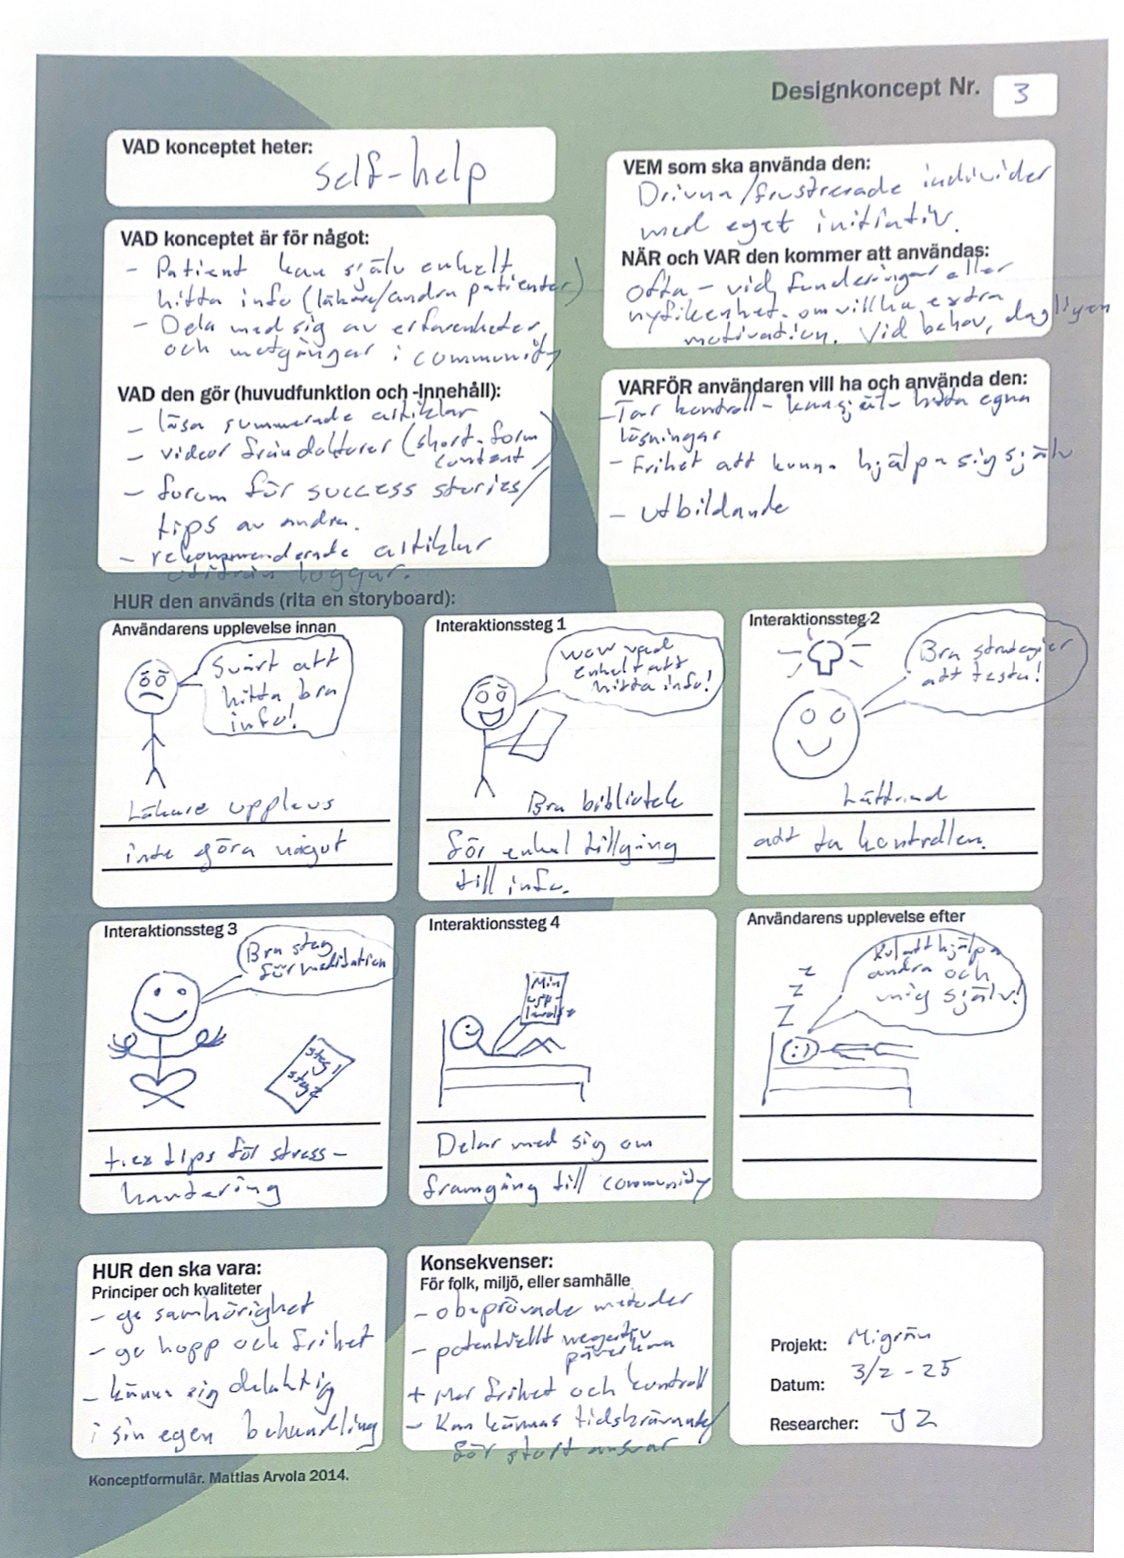 Designkoncept Nr. 3
VAD konceptet heter:
self-help
VAD konceptet är för något:
- Patient kan själv enkelt
hitta info (läkare/andra patienter)
- Dela med sig av erfarenheter
och motgångar i community
VAD den gör (huvudfunktion och -innehåll):
- läsa summerade artiklar
- videor från doktorer (short-form
content)
- forum för success stories/
tips av andra.
- rekommenderade artiklar
utifrån loggar.
VEM som ska använda den:
Drivna/frustrerade individer
med eget initiativ.
NÄR och VAR den kommer att användas:
Ofta - vid funderingar eller
nyfikenhet. om vill ha extra
motivation. Vid behov, dagligen
VARFÖR användaren vill ha och använda den:
- Tar kontroll - kan själv hitta egna
lösningar
- Frihet att kunna hjälpa sig själv
- utbildande
HUR den används (rita en storyboard):
Användarens upplevelse innan
Svårt att
hitta bra
info!
Läkare upplevs
inte göra något
Interaktionssteg 1
wow vad
enkelt att
hitta info!
Bra bibliotek
för enkel tillgång
till info.
Interaktionssteg 2
Bra strategier
att testa!
Lättad
att ta kontrollen.
Interaktionssteg 3
Bra steg
för meditation
steg 1
steg 2
t.ex tips för stress-
hantering
Interaktionssteg 4
Min
upp-
levelse
Delar med sig om
framgång till community
Användarens upplevelse efter
Kul att hjälpa
andra och
mig själv!
z
z
z
HUR den ska vara:
Principer och kvaliteter
- ge samhörighet
- ge hopp och frihet
- känna sig delaktig
i sin egen behandling
Konsekvenser:
För folk, miljö, eller samhälle
- obeprövade metoder
- potentiellt negativ
påverkan
+ Mer frihet och kontroll
- Kan kännas tidskrävande/
för stort ansvar
Projekt: Migrän
Datum: 3/2 - 25
Researcher: JZ
Konceptformulär. Mattias Arvola 2014.